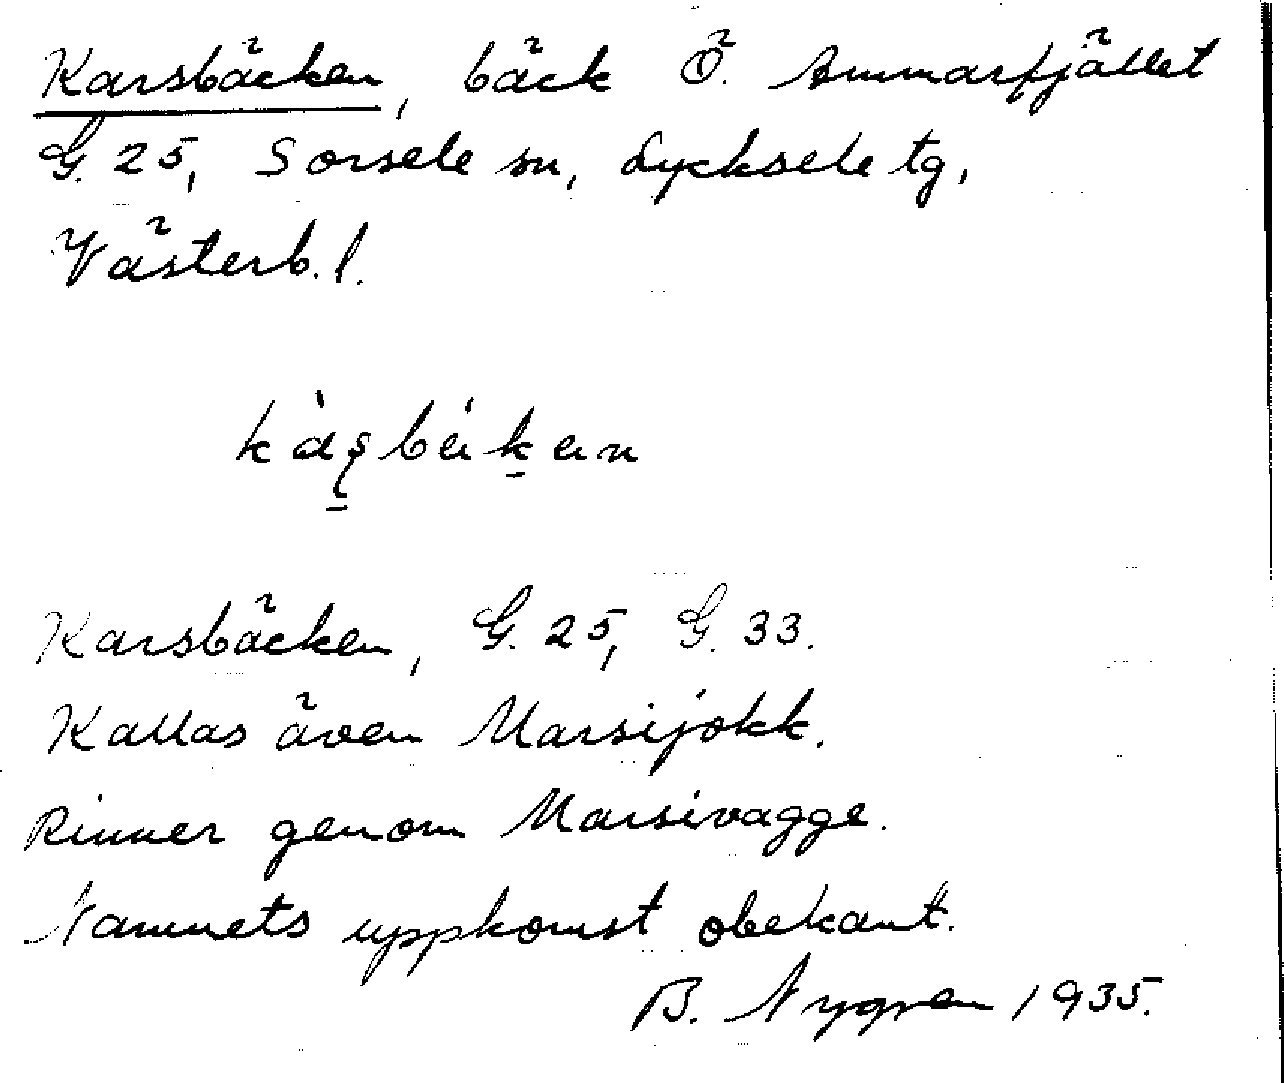 Karsbäcken, bäck Ö. Ammarfjället
G. 25, Sorsele sn, Lycksele tg,
Västerb. l.
Karsbäcken, G. 25, G. 33.
Kallas även Marsijokk.
Rinner genom Marsivagge.
Namnets uppkomst obekant.
B. Nygren 1935.